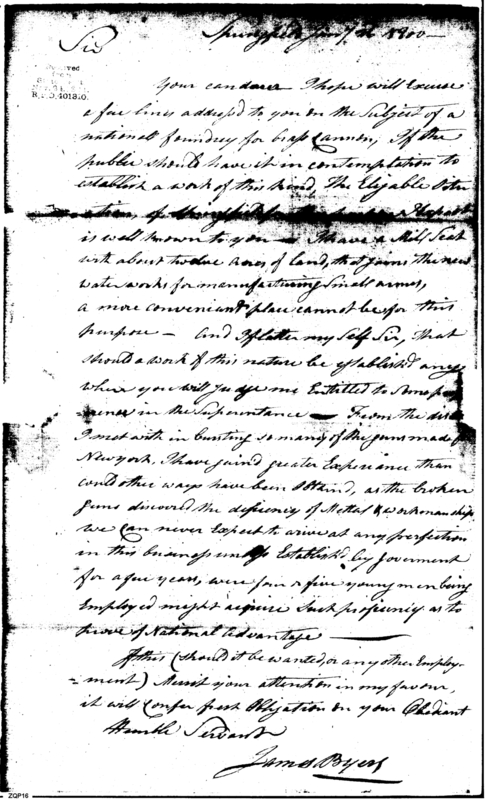 Springfield Jany 1800
Sir
Received
R.P.D. 40180.
Your candour I hope will Excuse
a few lines address'd to you on the Subject of a
national foundery for brass Cannon, If the
public should have it in contemplation to
establish a work of this kind, The Eligable Situ
ation of Springfield for the
is well known to you — I have a Mill Seat
with about twelve acres of land, that joins the new
water works for manufacturing Small arms,
a more conveneant place cannot be for this
purpose — And I flatter my Self Sir, that
should a work of this nature be establish'd any
where you will judge me Entitled to Some
in the Superintance — From the
I met with in bursting so many of the guns made
New York, I have gaind greater Experiance than
could other ways have been Obtaind, as the broken
Guns discoverd the defisiency of Mettal & workmanship,
we can never Expect to arive at any perfection
in this business unless Establish'd by Goverment
for a few years, were four or five young men being
Employ'd might acquire Such proficiency as to
prove of National Advantage —
If this (should it be wanted, or any other Employ-
=ment) Merrit your attention in my favour,
it will Confer great Obligation on your Obediant
Humble Servant
James Byers
ZQP16